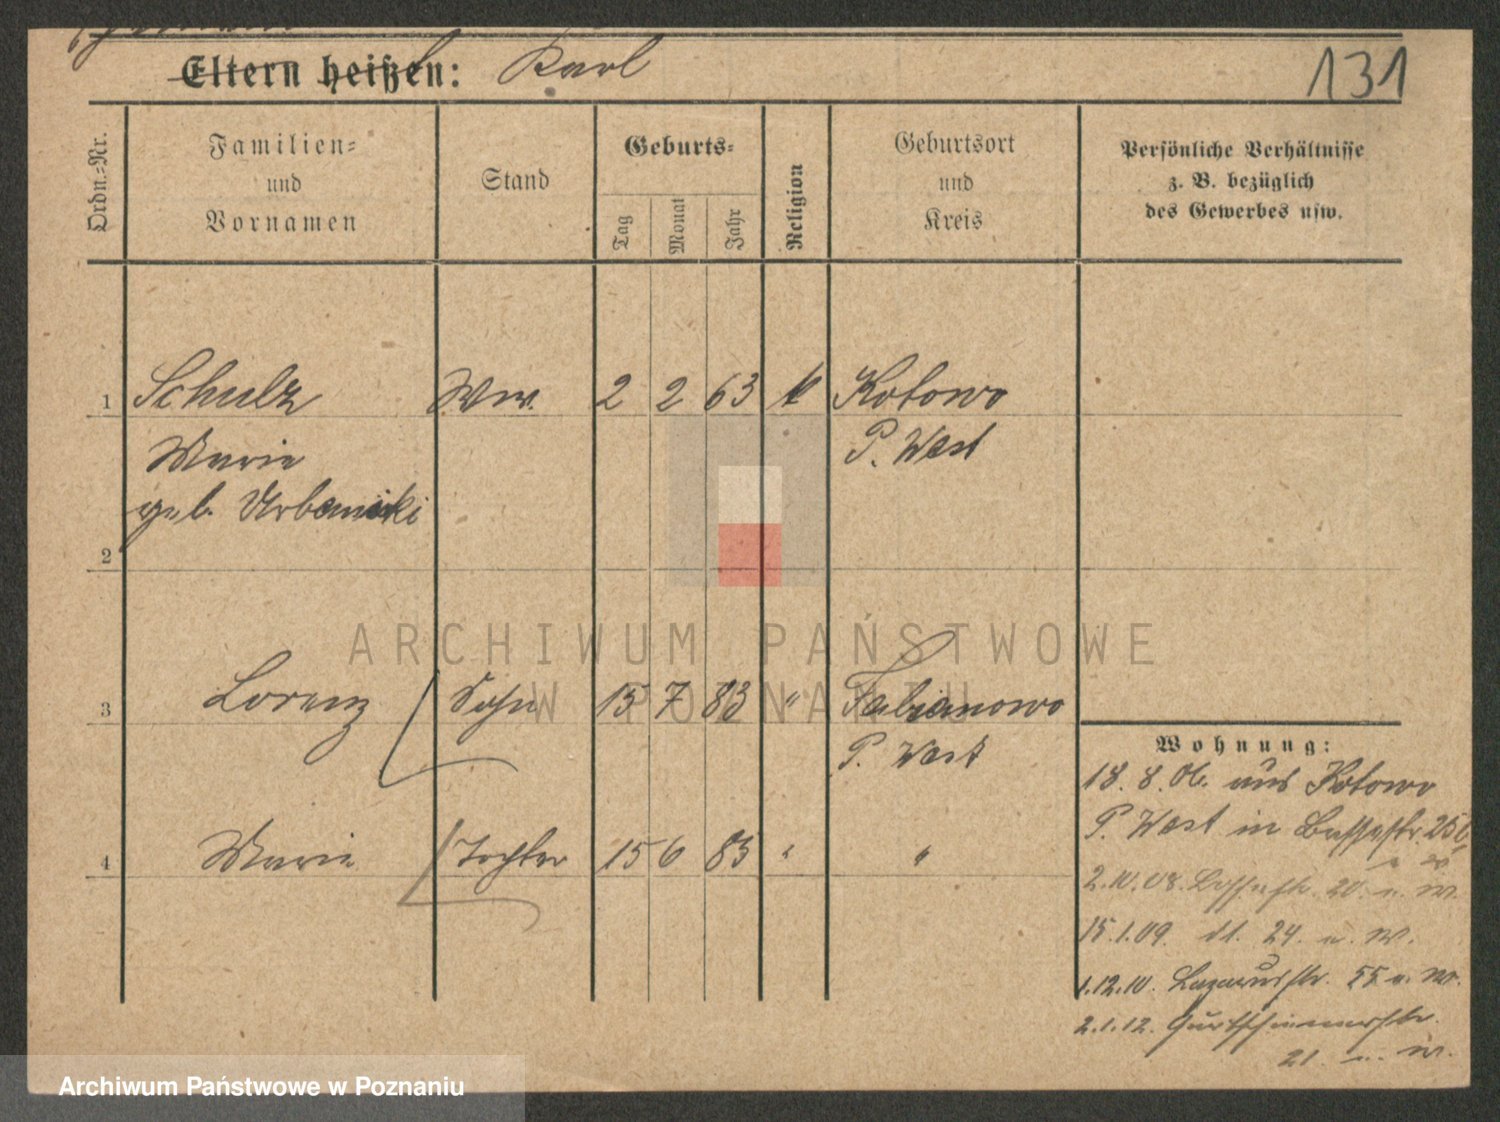 Eltern heißen: Karl
131
Ordn.-Nr.
Familien-
und
Vornamen
Stand
Geburts-
Tag
Monat
Jahr
Religion
Geburtsort
und
Kreis
Persönliche Verhältnisse
z. B. bezüglich
des Gewerbes usw.
1 Schulz Ww. 2 2 63 k Kotowo
Marie P. West
geb. Urbanski
2
3 Lorenz Sohn 15 7 83 " Fabianowo
P. West
4 Marie Tochter 15 6 85 " "
Wohnung:
18. 8. 06. aus Kotowo
P. West in
2.10.08. 20.
15.1.09. d. 24.
1.12.10. Lazarusstr. 55
2.1.12. Gurtschinerstr.
21
ARCHIWUM PAŃSTWOWE
W POZNANIU
Archiwum Państwowe w Poznaniu